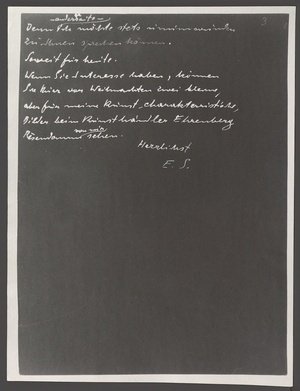 3
Denn Ich möchte stets
zu Ihnen sprechen können.
Soweit für heute.
Wenn Sie Interesse haben, können
Sie hier vor Weihnachten zwei kleine,
aber für meine Kunst charakteristische,
Bilder beim Kunsthändler Ehrenberg
von mir
sehen.
Herzlichst
E. S.